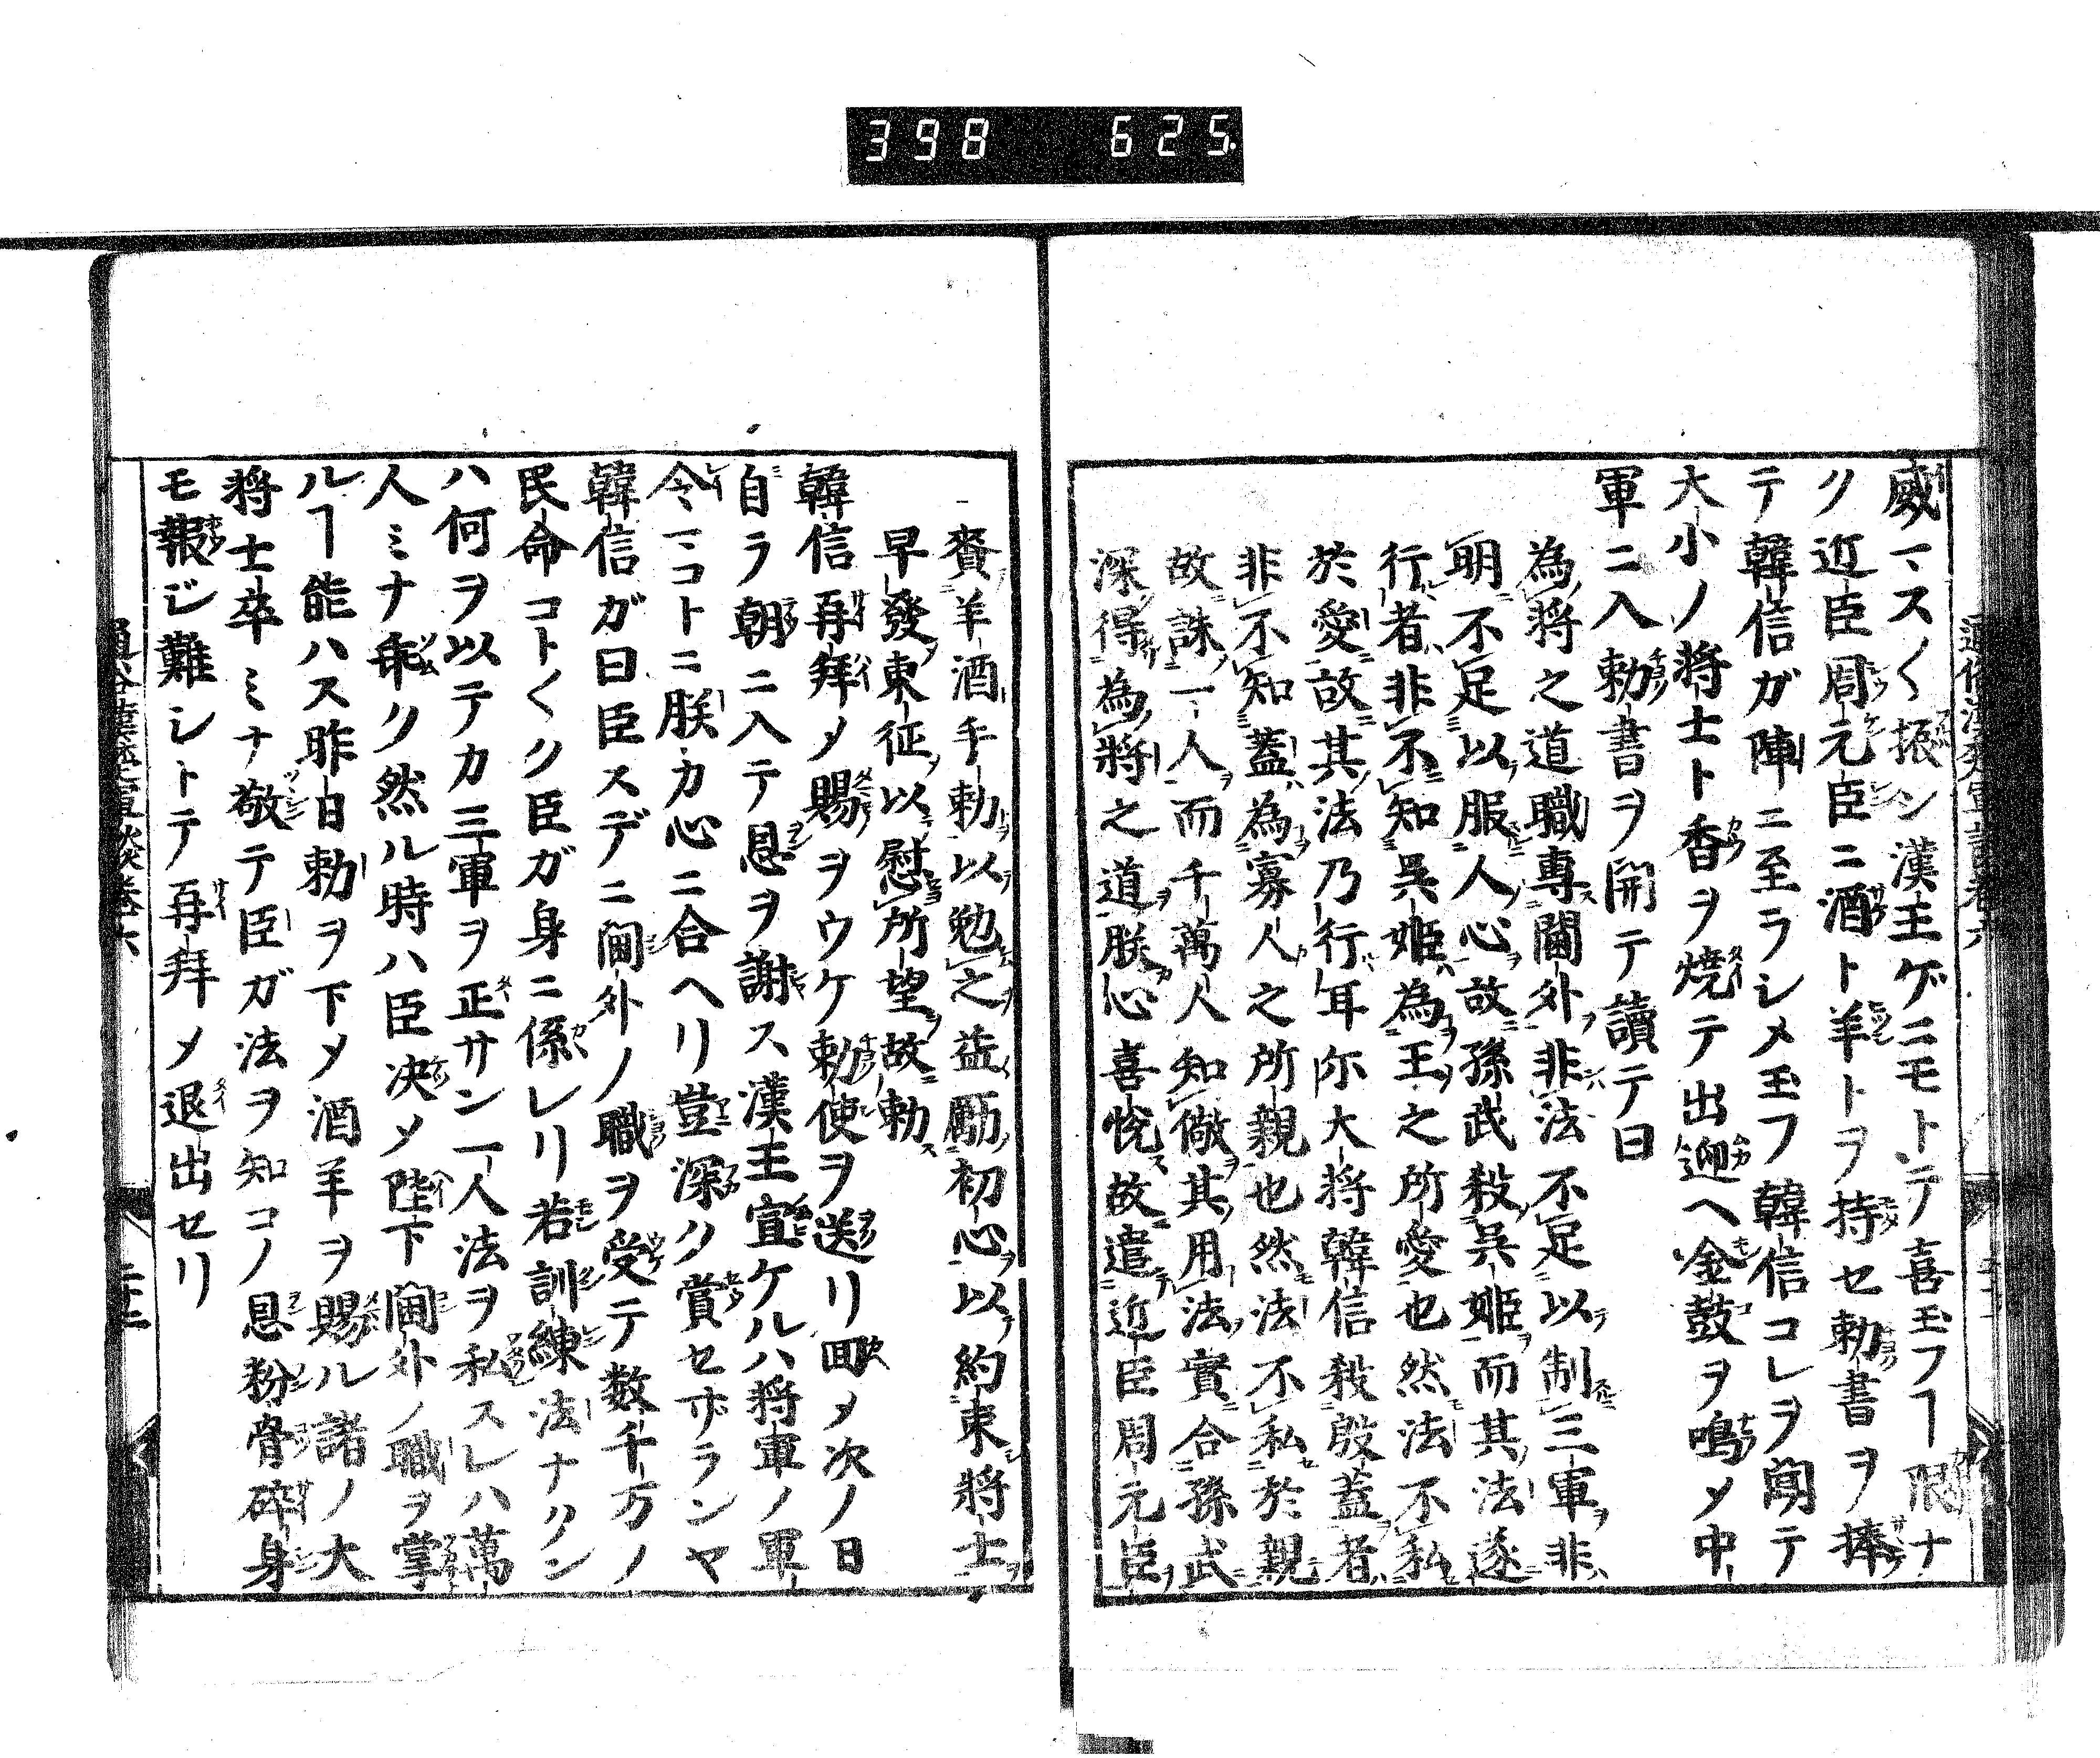 398 625
威マスく振ン漢王ゲニモトテ喜玉フヿ限ナ
ク近臣周元臣ニ酒ト羊トヲ持セ勅書ヲ捧
テ韓信ガ陣ニ至ラシメ玉フ韓信コレヲ聞テ
大小ノ將士ト香ヲ焼テ出迎ヘ金鼓ヲ鳴メ中
軍ニ入勅書ヲ開テ讀テ曰
為將之道職專閫外非法不足以制三軍非
明不足以服人心故孫武殺吳姬而其法遂
行者非不知吳姬為王之所愛也然法不私
於愛故其法乃行耳尓大將韓信殺殷蓋者
非不知蓋為寡人之所親也然法不私於親
故誅一人而千萬人知儆其用法實合孫武
深得為將之道朕心喜悅故遣近臣周元臣
賚羊酒手勅以勉之益勵初心以約束將士
早發東征以慰所望故勅
韓信再拜メ賜ヲウケ勅使ヲ送リ回メ次ノ日
自ラ朝ニ入テ恩ヲ謝ス漢王宣ケルハ将軍ノ軍
令マコトニ朕カ心ニ合ヘリ豈深ク賞セザランヤ
韓信ガ曰臣スデニ閫外ノ職ヲ受テ数千万ノ
民命コトくク臣ガ身ニ係レリ若訓練法ナクン
ハ何ヲ以テカ三軍ヲ正サン一人法ヲ私スレハ萬
人ミナ乖ク然ル時ハ臣决メ陛下閫外ノ職ヲ掌
ルヿ能ハス昨日勅ヲ下メ酒羊ヲ賜ル諸ノ大
将士卒ミナ敬テ臣ガ法ヲ知コノ恩粉骨碎身
モ報ジ難シトテ再拜メ退出セリ
通俗漢楚軍談卷六